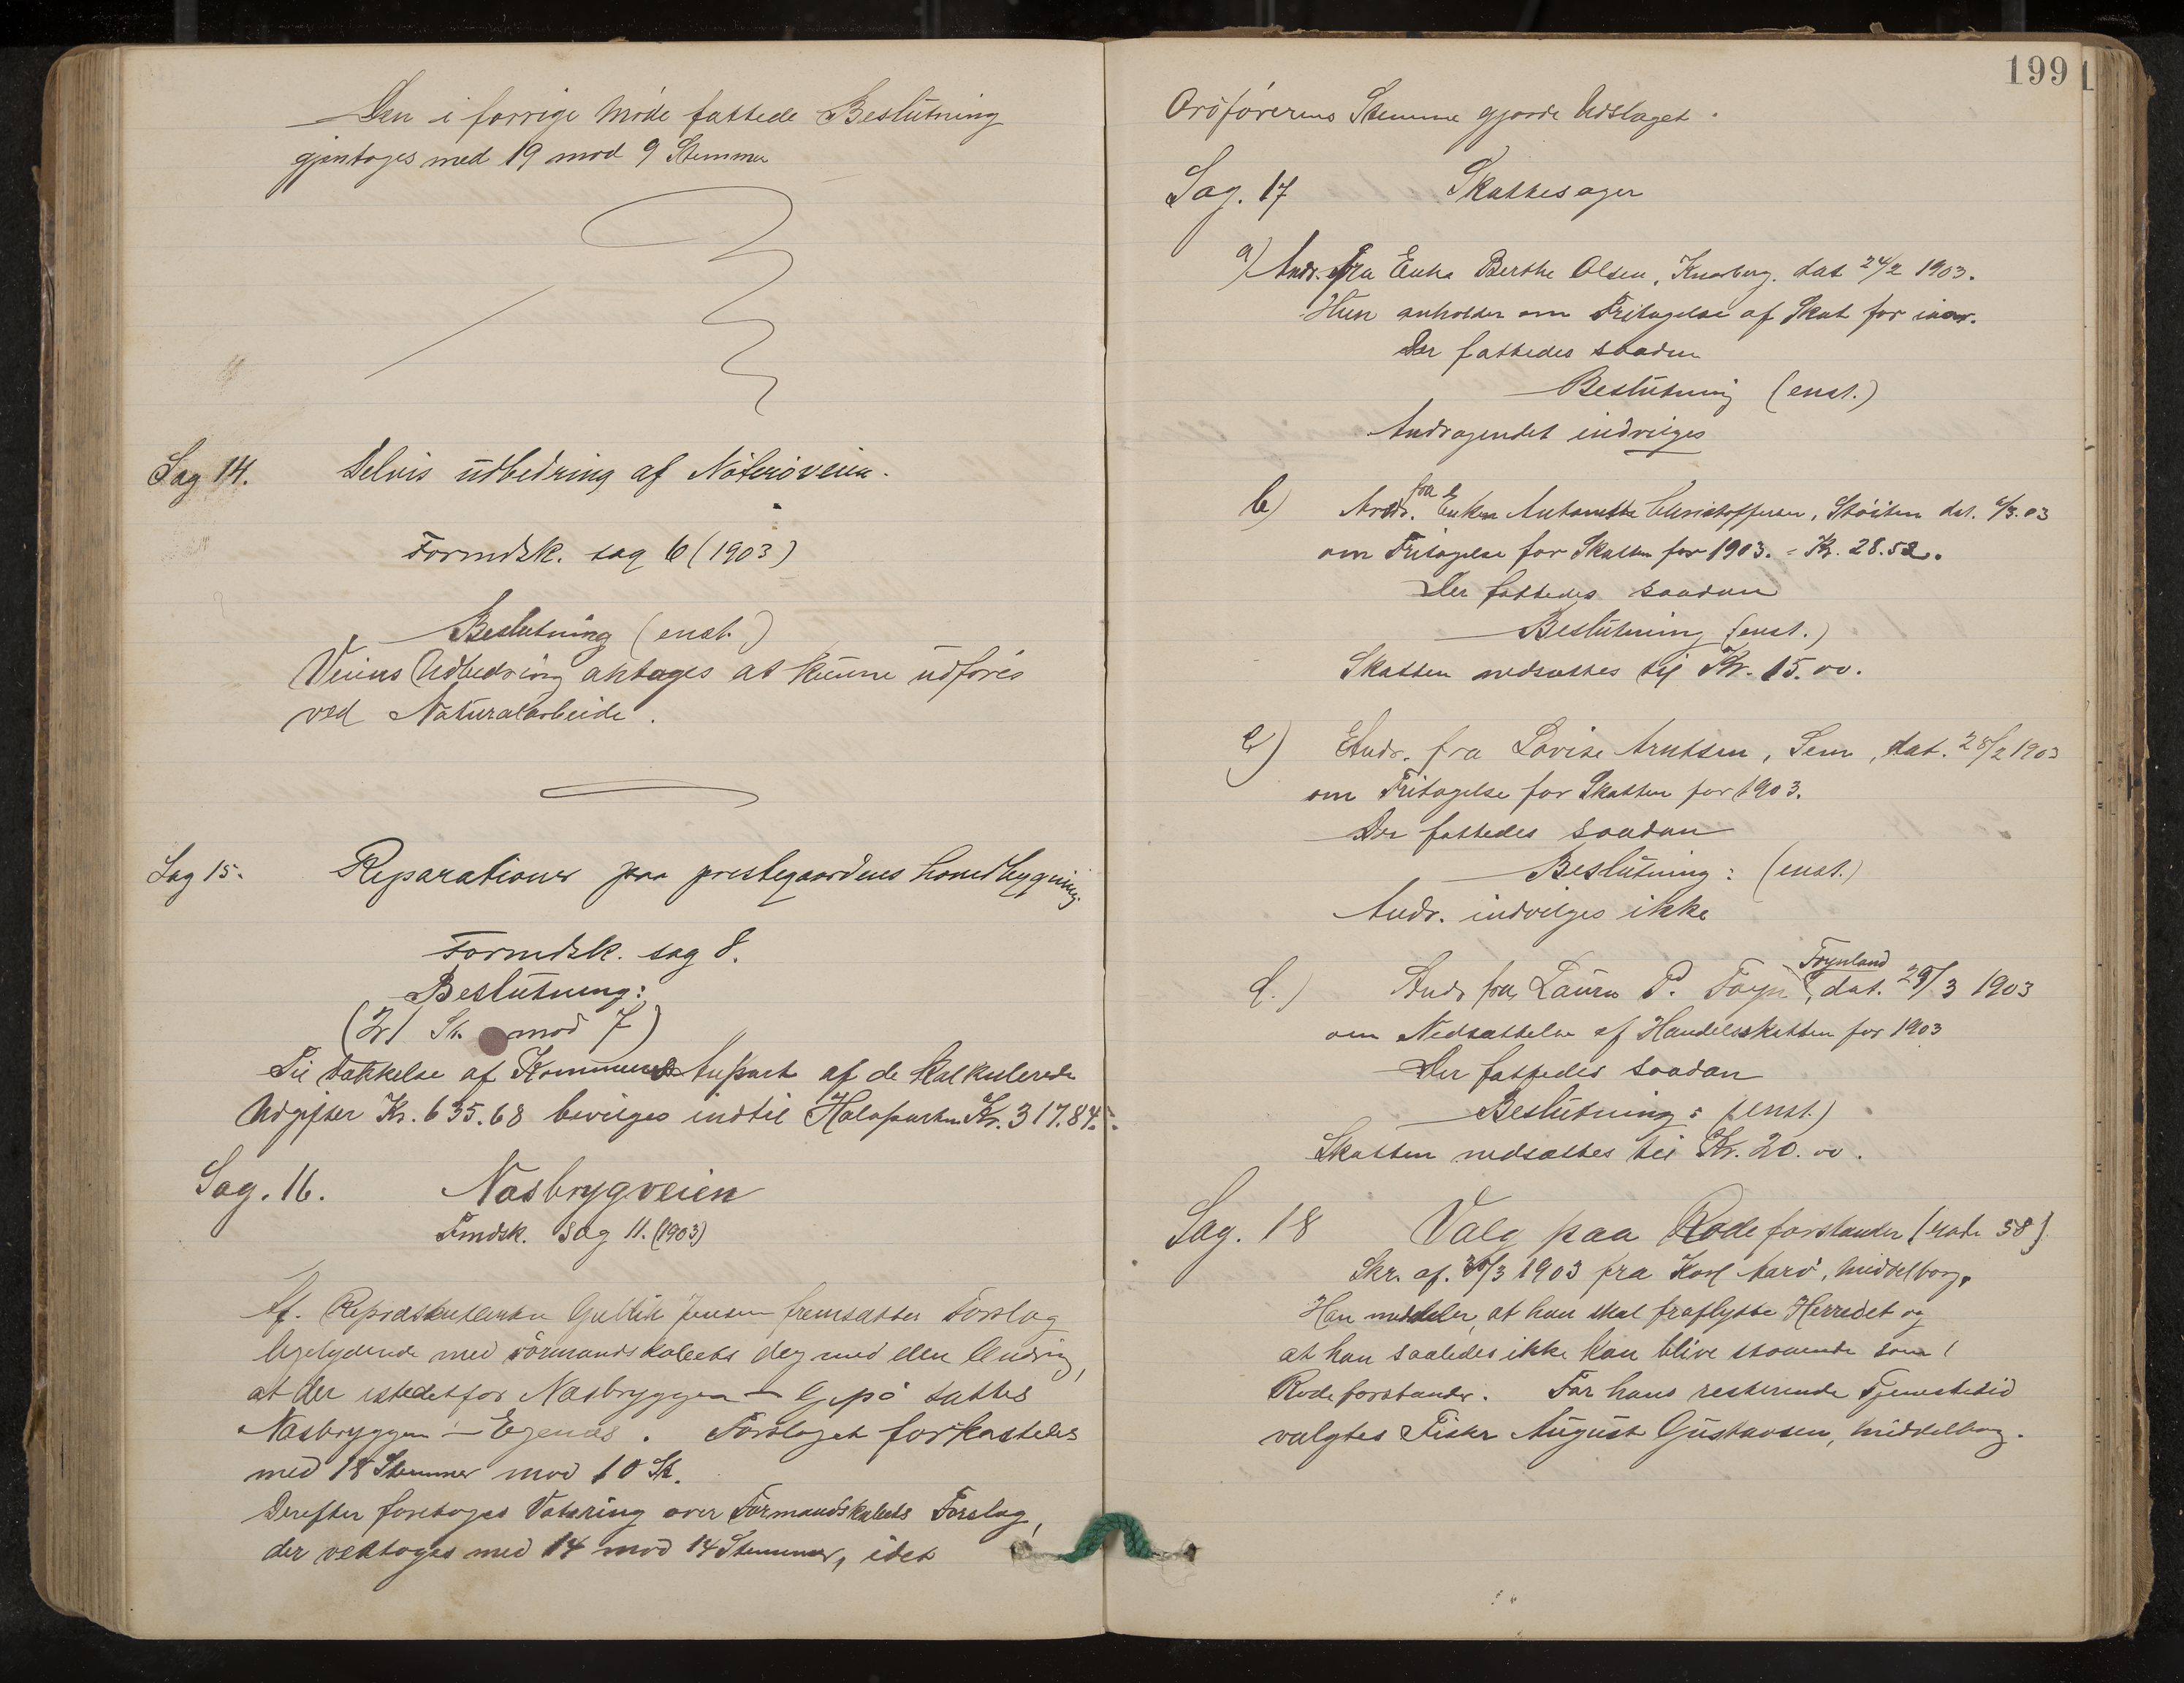 Den i forrige Møde fattede Beslutning
gjentoges med 19 mod 9 Stemmer
Sag 14. Delvis udbedring af Nøterøveien.
Formdsk. sag 6 (1903)
Beslutning (enst.)
Veiens Udbedring antages at kunne udføres
ved Naturalarbeide.
Sag 15. Reparationer paa prestegaardens hovedbygning.
Formdsk. sag 8.
Beslutning:
(21 St. mod 7)
Til Dækkelse af Kommunens Anpart af de kalkulerede
Udgifter Kr. 635.68 bevilges indtil Halvparten Kr. 317.84.
Sag. 16. Næsbrygveien
Fmdsk. sag 11. (1903)
Af Repræsentanten Gullik Jensen fremsattes Forslag
ligelydende med Formandskabets dog med den Ændring,
at der istedetfor Næsbryggen — sattes
Næsbryggen — Egenæs. Forslaget forkastedes
med 18 Stemmer mod 10 St.
Derefter foretoges Votering over Formandskabets Forslag,
der vedtoges med 14 mod 14 Stemmer, idet
199
Ordførerens Stemme gjorde Udslaget.
Sag. 17 Skattesager
a) Andr. fra Enke Berthe Olsen, Knarberg. dat 24/2 1903.
Hun anholder om Fritagelse af Skat for iaar.
Der fattedes saadan
Beslutning (enst.)
Andragendet indvilges
b) Andr. fra Enken Christoffersen, Støiten dat. /3.03
om Fritagelse for Skatten for 1903. = Kr. 28.52.
Der fattedes saadan
Beslutning (enst.)
Skatten nedsættes til Kr. 15.00.
c) Andr. fra Lovise Arntsen, Sem, dat. 28/2 1903
om Fritagelse for Skatten for 1903.
Der fattedes saadan
Beslutning: (enst.)
Andr. indvilges ikke
d.) Andr fra Laura P. Føyn, Føynland dat. 29/3 1903
om Nedsættelse af Handelsskatten for 1903
Der fattedes saadan
Beslutning: (enst.)
Skatten nedsættes til Kr. 20.00.
Sag. 18 Valg paa Rodeforstander (rode 58)
Skr. af. 30/3 1903 fra Karl Aarø, Middelborg.
Han meddeler, at han skal fraflytte Herredet og
at han saaledes ikke kan blive staaende som
Rodeforstander. For hans resterende Tjenestetid
valgtes Fisker August Gustavsen, Middelborg.